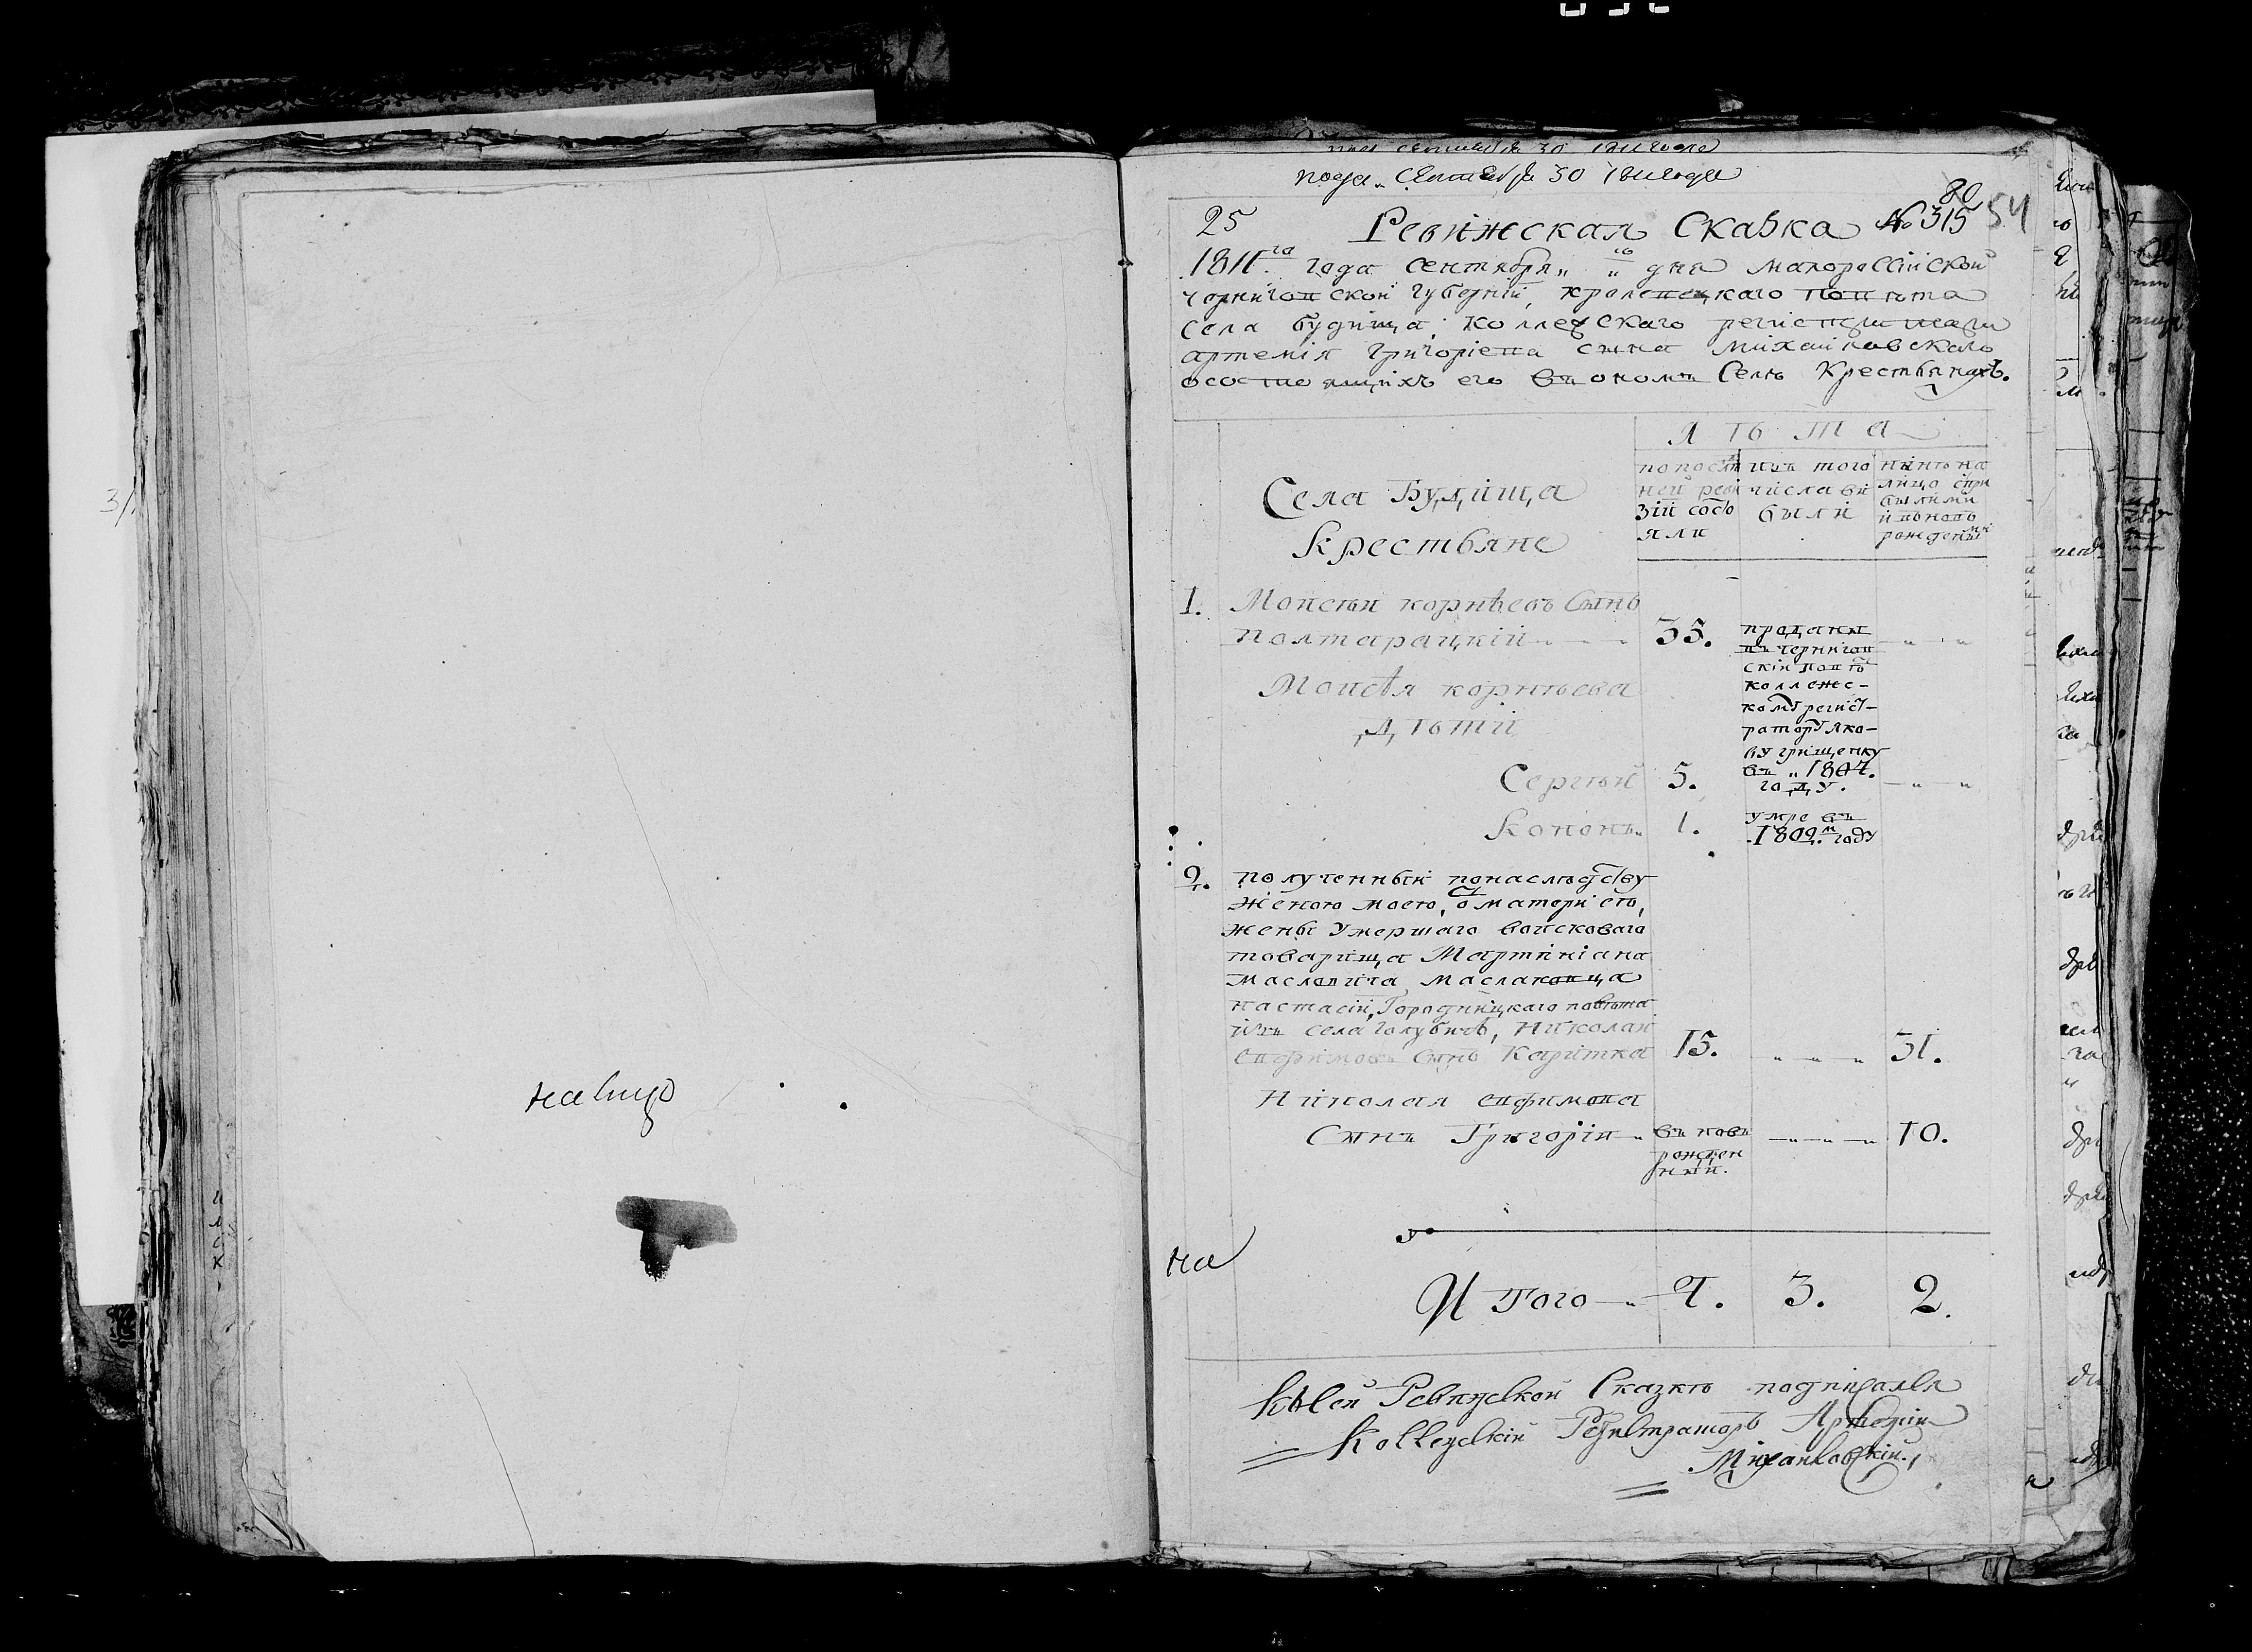 налицо
пода. Сентября 30 1811 года
80
25 Ревижская Сказка № 315 54
1811го года Сентября „ „ дня малороссійской
черниговской губерніи, кролевецкаго повѣта
села будища, коллежскаго регистратора
артемія григоріева сына михайловскаго
о состоящихъ его въ ономъ Селѣ Крестьянахъ.
Лѣта
Села Будища
Крестьяне
по послѣд
ней реви
зіи состо
яли
изъ того
числа вы
были
нынѣ на
лицо с при
былыми
и вновь
рожденными
1. Моисѣй корнѣевъ Сынъ
полтарацкій 35.
проданы
въ чернигов
скій повѣтъ
коллежс-
кому регист-
ратору Яко-
ву грищенку
въ „1807.
году.
Моисѣя корнѣева
Дѣти
Сергѣй 5.
Кононъ 1. умре въ
1802м году
2. полученный по наслѣдству
женою моею, от матери его,
жены Умершаго войсковаго
товарища Мартиніана
масловича маслаковца
настасіи, Городницкаго повѣта
изъ села голубичъ, Николай
Евфимовъ сынъ Каритка 15. „ „ 31.
Николая евфимова
Сынъ Григорій вновь
рожден
ный. 10.
на
И Того 4. 3. 2.
К сей Ревижской Сказкѣ подписался
Коллежскій Регистраторъ Артемій
Михайловскій